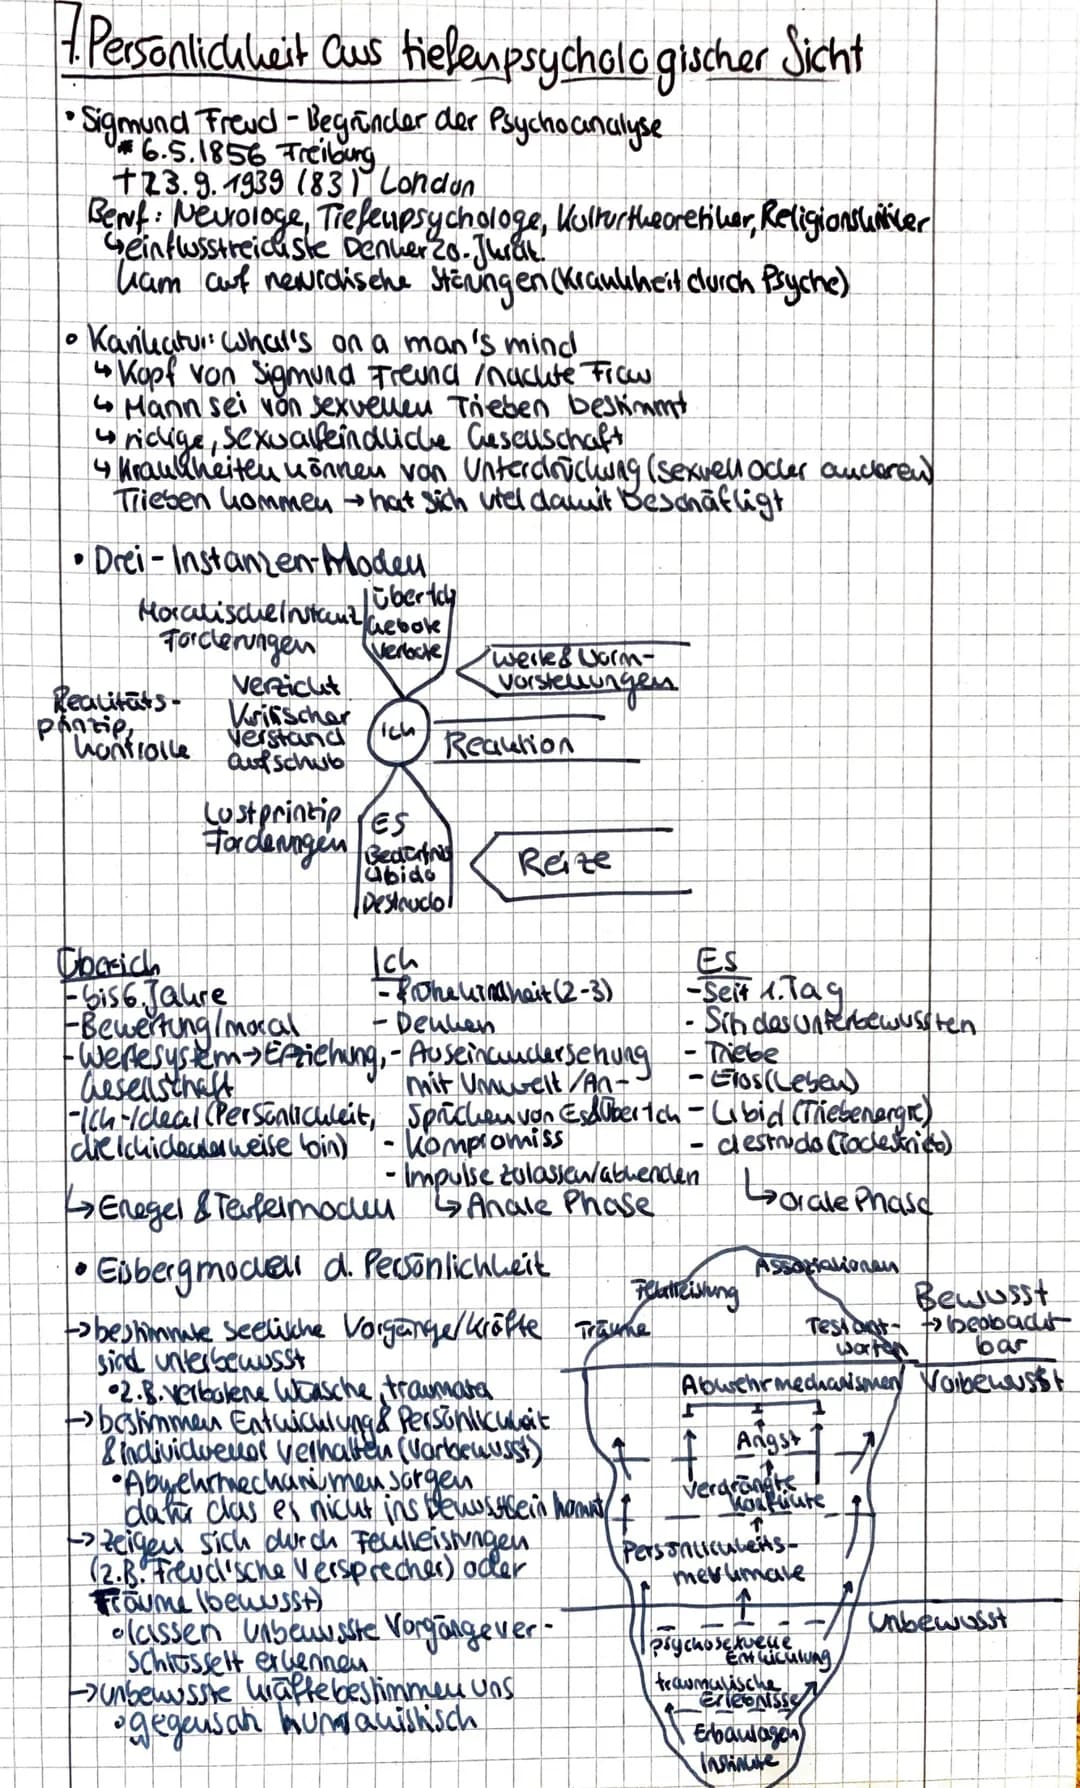 7. Persönlichkeit aus tiefenpsychologischer Sicht
• Sigmund Freud - Begründer der Psychoanalyse
* 6.5.1856 Freiburg
† 23.9.1939 (83) London
Beruf: Neurologe, Tiefenpsychologe, Kulturtheoretiker, Religionskritiker
↳ einflussreichste Denker 20. Jhrdt.
kam auf neurotische Störungen (Krankheit durch Psyche)
• Karikatur: What's on a man's mind
↳ Kopf von Sigmund Freund / nackte Frau
↳ Mann sei von sexuellen Trieben bestimmt
↳ sexualfeindliche Gesellschaft
↳ Krankheiten können von Unterdrückung (sexuell oder anderen)
Trieben kommen → hat sich viel damit beschäftigt
• Drei-Instanzen-Modell
Moralische Instanz
Forderungen
Über Ich
Gebote
Verbote
Werte & Norm-
vorstellungen
Realitäts-
prinzip,
kontrolle
Verzicht
Kritischer
Verstand
aufschub
Ich
Reaktion
Lustprinzip
Forderungen
ES
Bedürfnis
Libido
Destrudo
Reize
Überich
- bis 6. Jahre
- Bewertung/moral
- Wertesystem → Erziehung,
Gesellschaft
- Ich-Ideal (Persönlichkeit,
die ich idealerweise bin)
↳ Enegel & Teufelmodell
Ich
- frühe Kindheit (2-3)
- Denken
- Auseinandersetzung
mit Umwelt / An-
sprüchen von Es & Über Ich
- Kompromiss
- Impulse zulassen/abwenden
↳ Anale Phase
Es
- Seit 1. Tag
- Sitz des Unterbewussten
- Triebe
- Eros (Leben)
- Libid (Triebenergie)
- destrudo (Todestrieb)
↳ orale Phase
• Eisbergmodell d. Persönlichkeit
→ bestimmte seelische Vorgänge/Kräfte
sind unterbewusst
• z.B. verbotene Wünsche, traumata
→ bestimmen Entwicklung & Persönlichkeit
& individuelles Verhalten (Vorbewusst)
• Abwehrmechanismen sorgen
dafür das es nicht ins Bewusstsein kommt
→ zeigen sich durch Fehlleistungen
(z.B. Freud'sche Versprecher) oder
Träume (bewusst)
• lassen unbewusste Vorgänge ver-
schlüsselt erkennen
→ unbewusste Kräfte bestimmen uns
• gegensatz humanistisch
Assoziationen
Fehlleistung
Träume
Testant-
worten
Bewusst
→ beobacht-
bar
Abwehrmechanismen
Vorbewusst
Angst
verdrängte
Konflikte
Persönlichkeits-
merkmale
Unbewusst
psychosexuelle
Entwicklung
traumatische
Erlebnisse
Erbanlagen
Instinkte